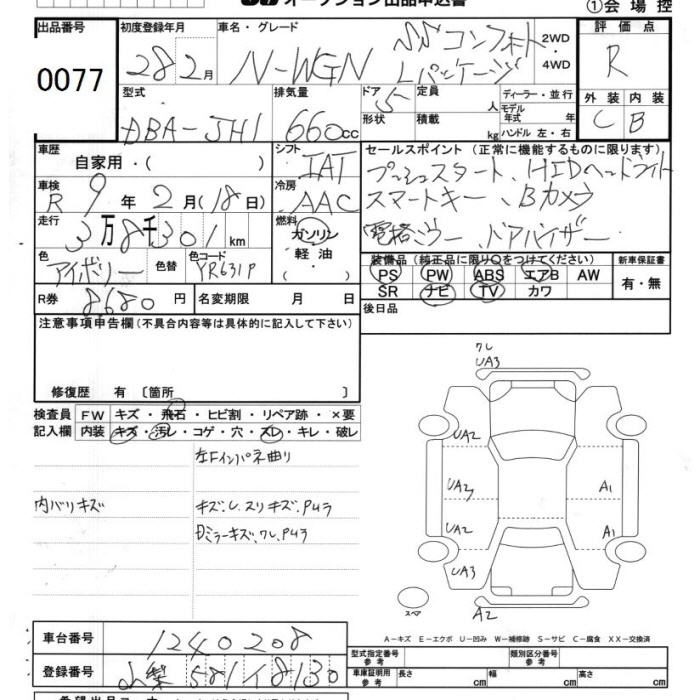 オークション出品申込書
①会場控
出品番号 初度登録年月 車名・グレード 評価点
0077 28 2月 N-WGN SSコンフォート Lパッケージ 2WD・4WD R
型式 排気量 ドア 定員 ディーラー・並行 外装 内装
DBA-JH1 660cc 5 人 モデル年式 年式 C B
形状 積載 kg ハンドル 左・右
車歴 シフト セールスポイント (正常に機能するものに限ります)
自家用・( ) IAT プッシュスタート、HIDヘッドライト
車検 冷房
R 9年 2月(18日) AAC スマートキー、Bカメラ
走行 燃料
3万8千301km ガソリン 電格ミラー ドアバイザー
色 色替 色コード 軽油
アイボリー YR631P ・( )
装備品 (純正品に限り○をつけてください) 新車保証書
PS PW ABS エアB AW 有・無
SR ナビ TV カワ
R券 8680円 名変期限 月 日 後日品
注意事項申告欄(不具合内容等は具体的に記入して下さい)
修復歴 有 〔箇所 〕
検査員 FW キズ・飛石・ヒビ割・リペア跡・×要
記入欄 内装 キズ・汚レ・コゲ・穴・スレ・キレ・破レ
左Fインパネ曲り
内バリキズ キズ、U、スリキズ、Pムラ
Dミラーキズ、ワレ、Pムラ
ワレ
UA3
UA2
UA3 A1
UA2 A1
UA3
スペア A2
A-キズ E-エクボ U-凹み W-補修跡 S-サビ C-腐食 XX-交換済
車台番号 1240208 型式指定番号 参考 類別区分番号 参考
登録番号 山梨 581 イ 8130 車庫証明用 参考 長さ cm 幅 cm 高さ cm
希望出品コーナー